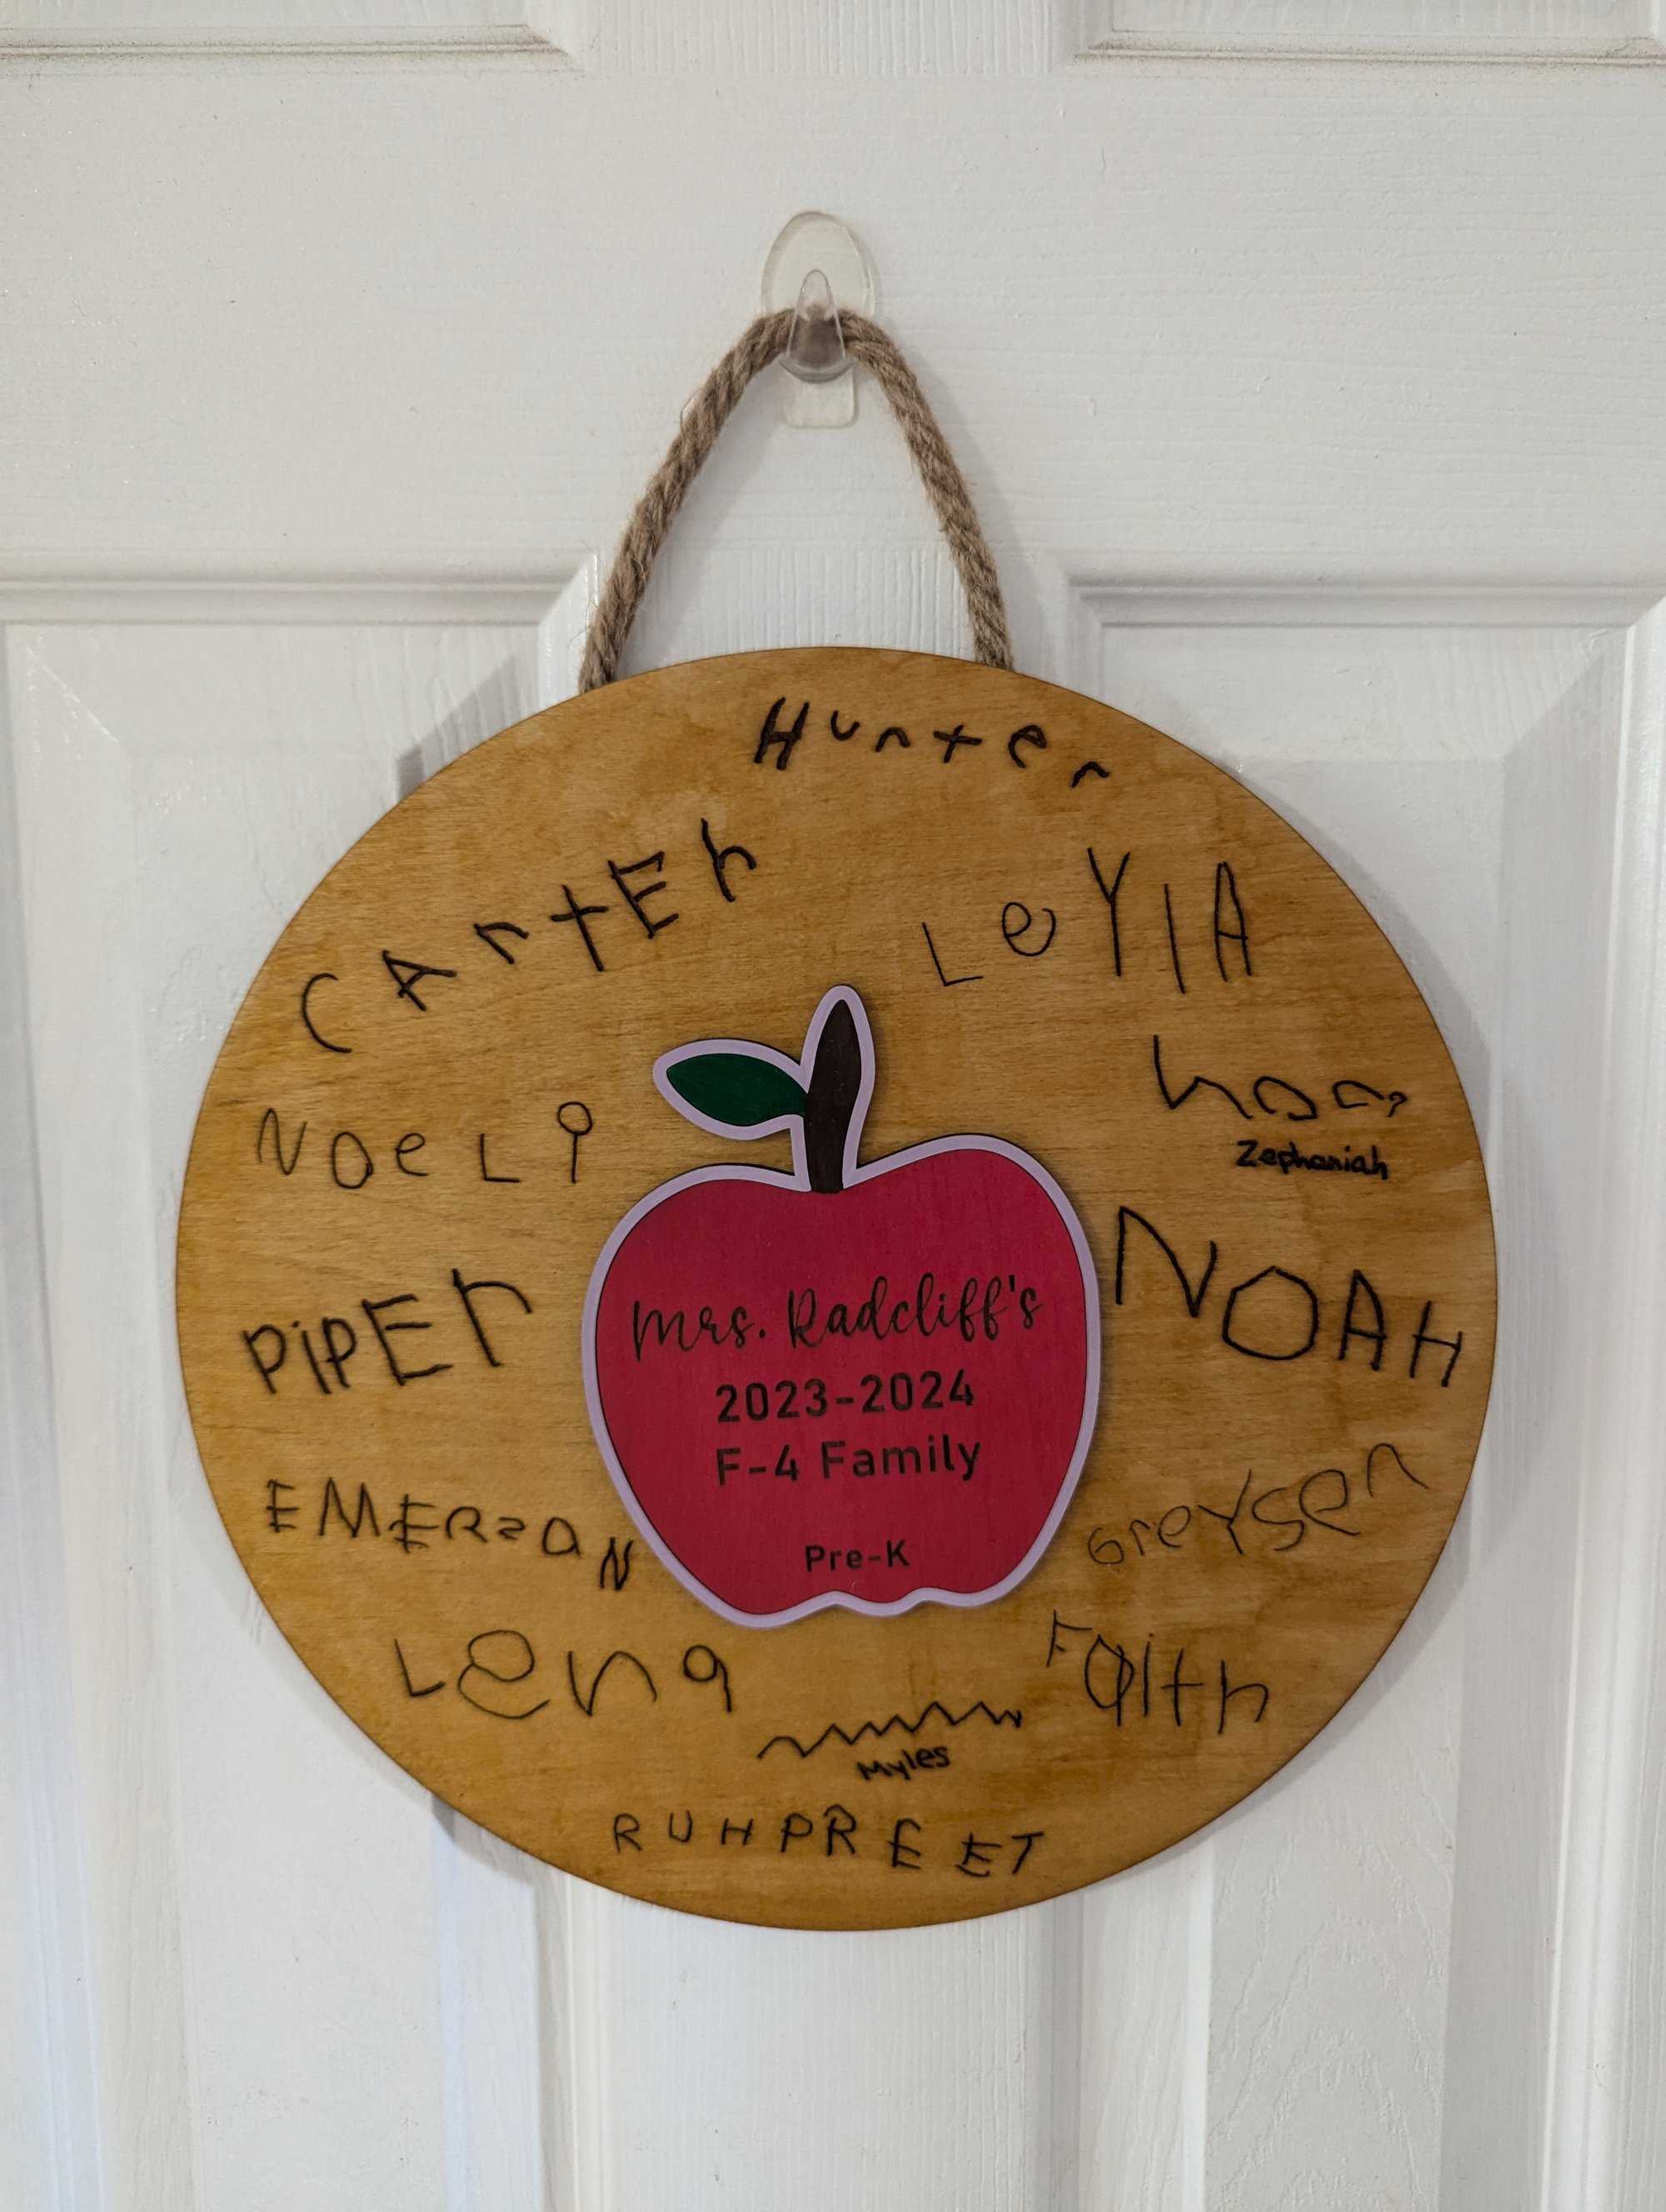 Hunter
CArtEr
LeYlA
NOeLi
Zephaniah
PiPEr
NOAH
Mrs. Radcliff's
2023-2024
F-4 Family
Pre-K
EMERSON
GreYsen
Lena
FaitH
Myles
RUHPREET